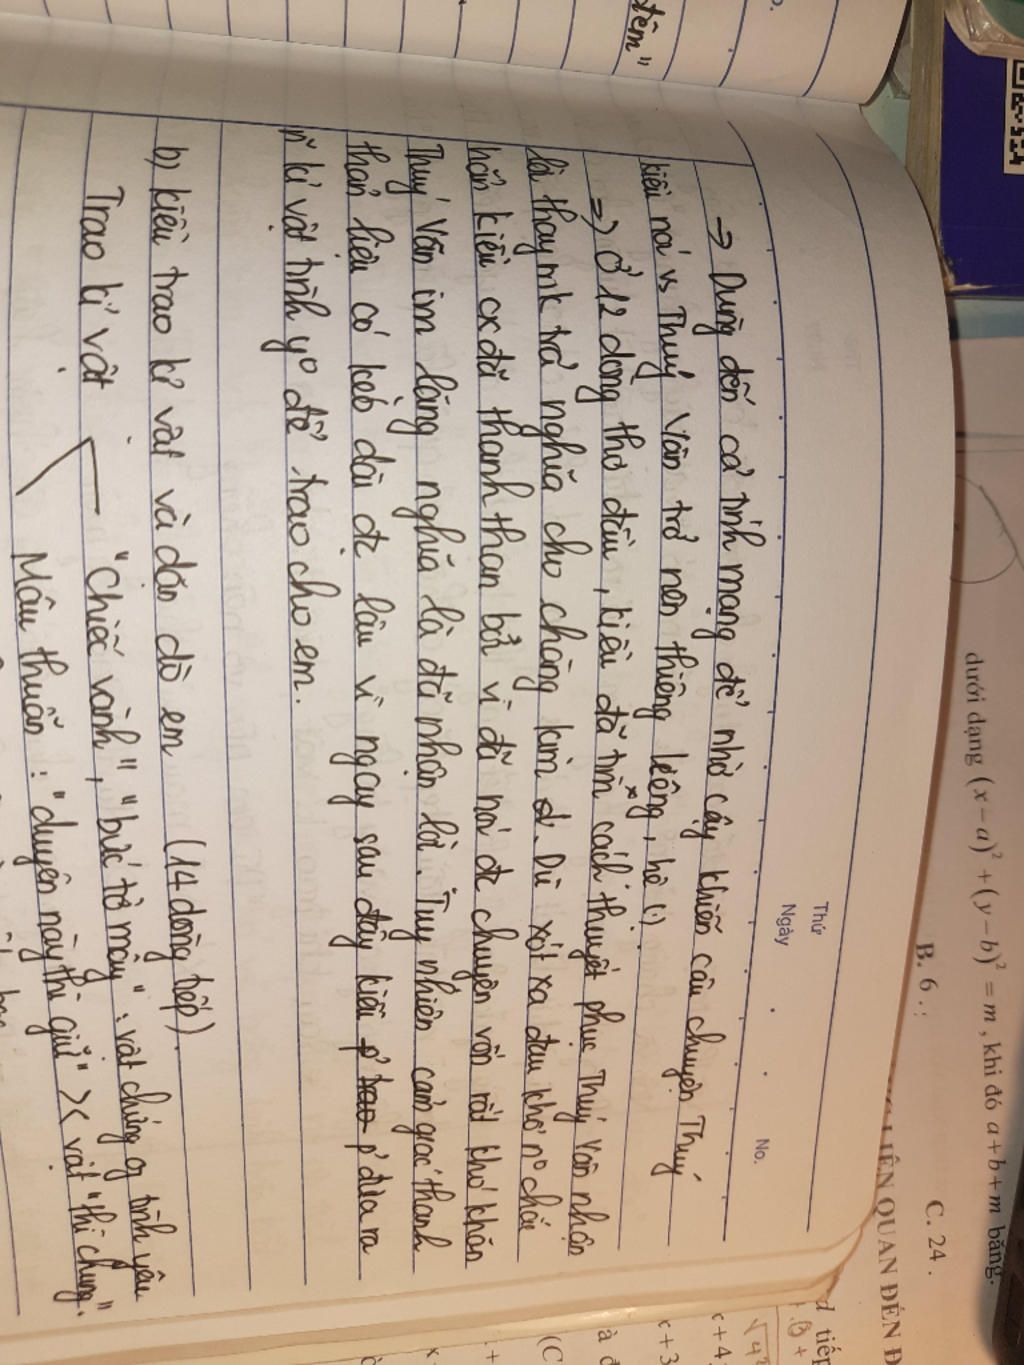 Thứ
Ngày
No.
→ Dùng đến cả tính mạng để nhờ cậy khiến câu chuyện Thuý
Kiều nói vs Thuý Vân trở nên thiêng liêng, hệ (.).
⇒ Ở 12 dòng thơ đầu, Kiều đã tìm cách thuyết phục Thuý Vân nhận
lời thay mk trả nghĩa cho chàng Kim. Dù xót xa đau khổ nº chắc
hẳn Kiều cx đã thanh thản bởi vì đã nói đc chuyện vốn rất khó khăn
Thuý Vân im lặng nghĩa là đã nhận lời. Tuy nhiên cảm giác thanh
thản liệu có kéo dài đc lâu vì ngay sau đây Kiều p' trao p' đưa ra
n~ kỉ vật tình yº để trao cho em.
b) Kiều trao kỉ vật và dặn dò em (14 dòng tiếp).
Trao kỉ vật
"Chiếc vành", "bức tờ mây": vật chứng of tình yêu
Mâu thuẫn: "duyên này thì giữ" >< vật "thì chung".
đêm"
dưới dạng (x − a)² + (y − b)² = m, khi đó a + b + m bằng.
B. 6.
C. 24.
LIÊN QUAN ĐẾN Đ
d tiếp